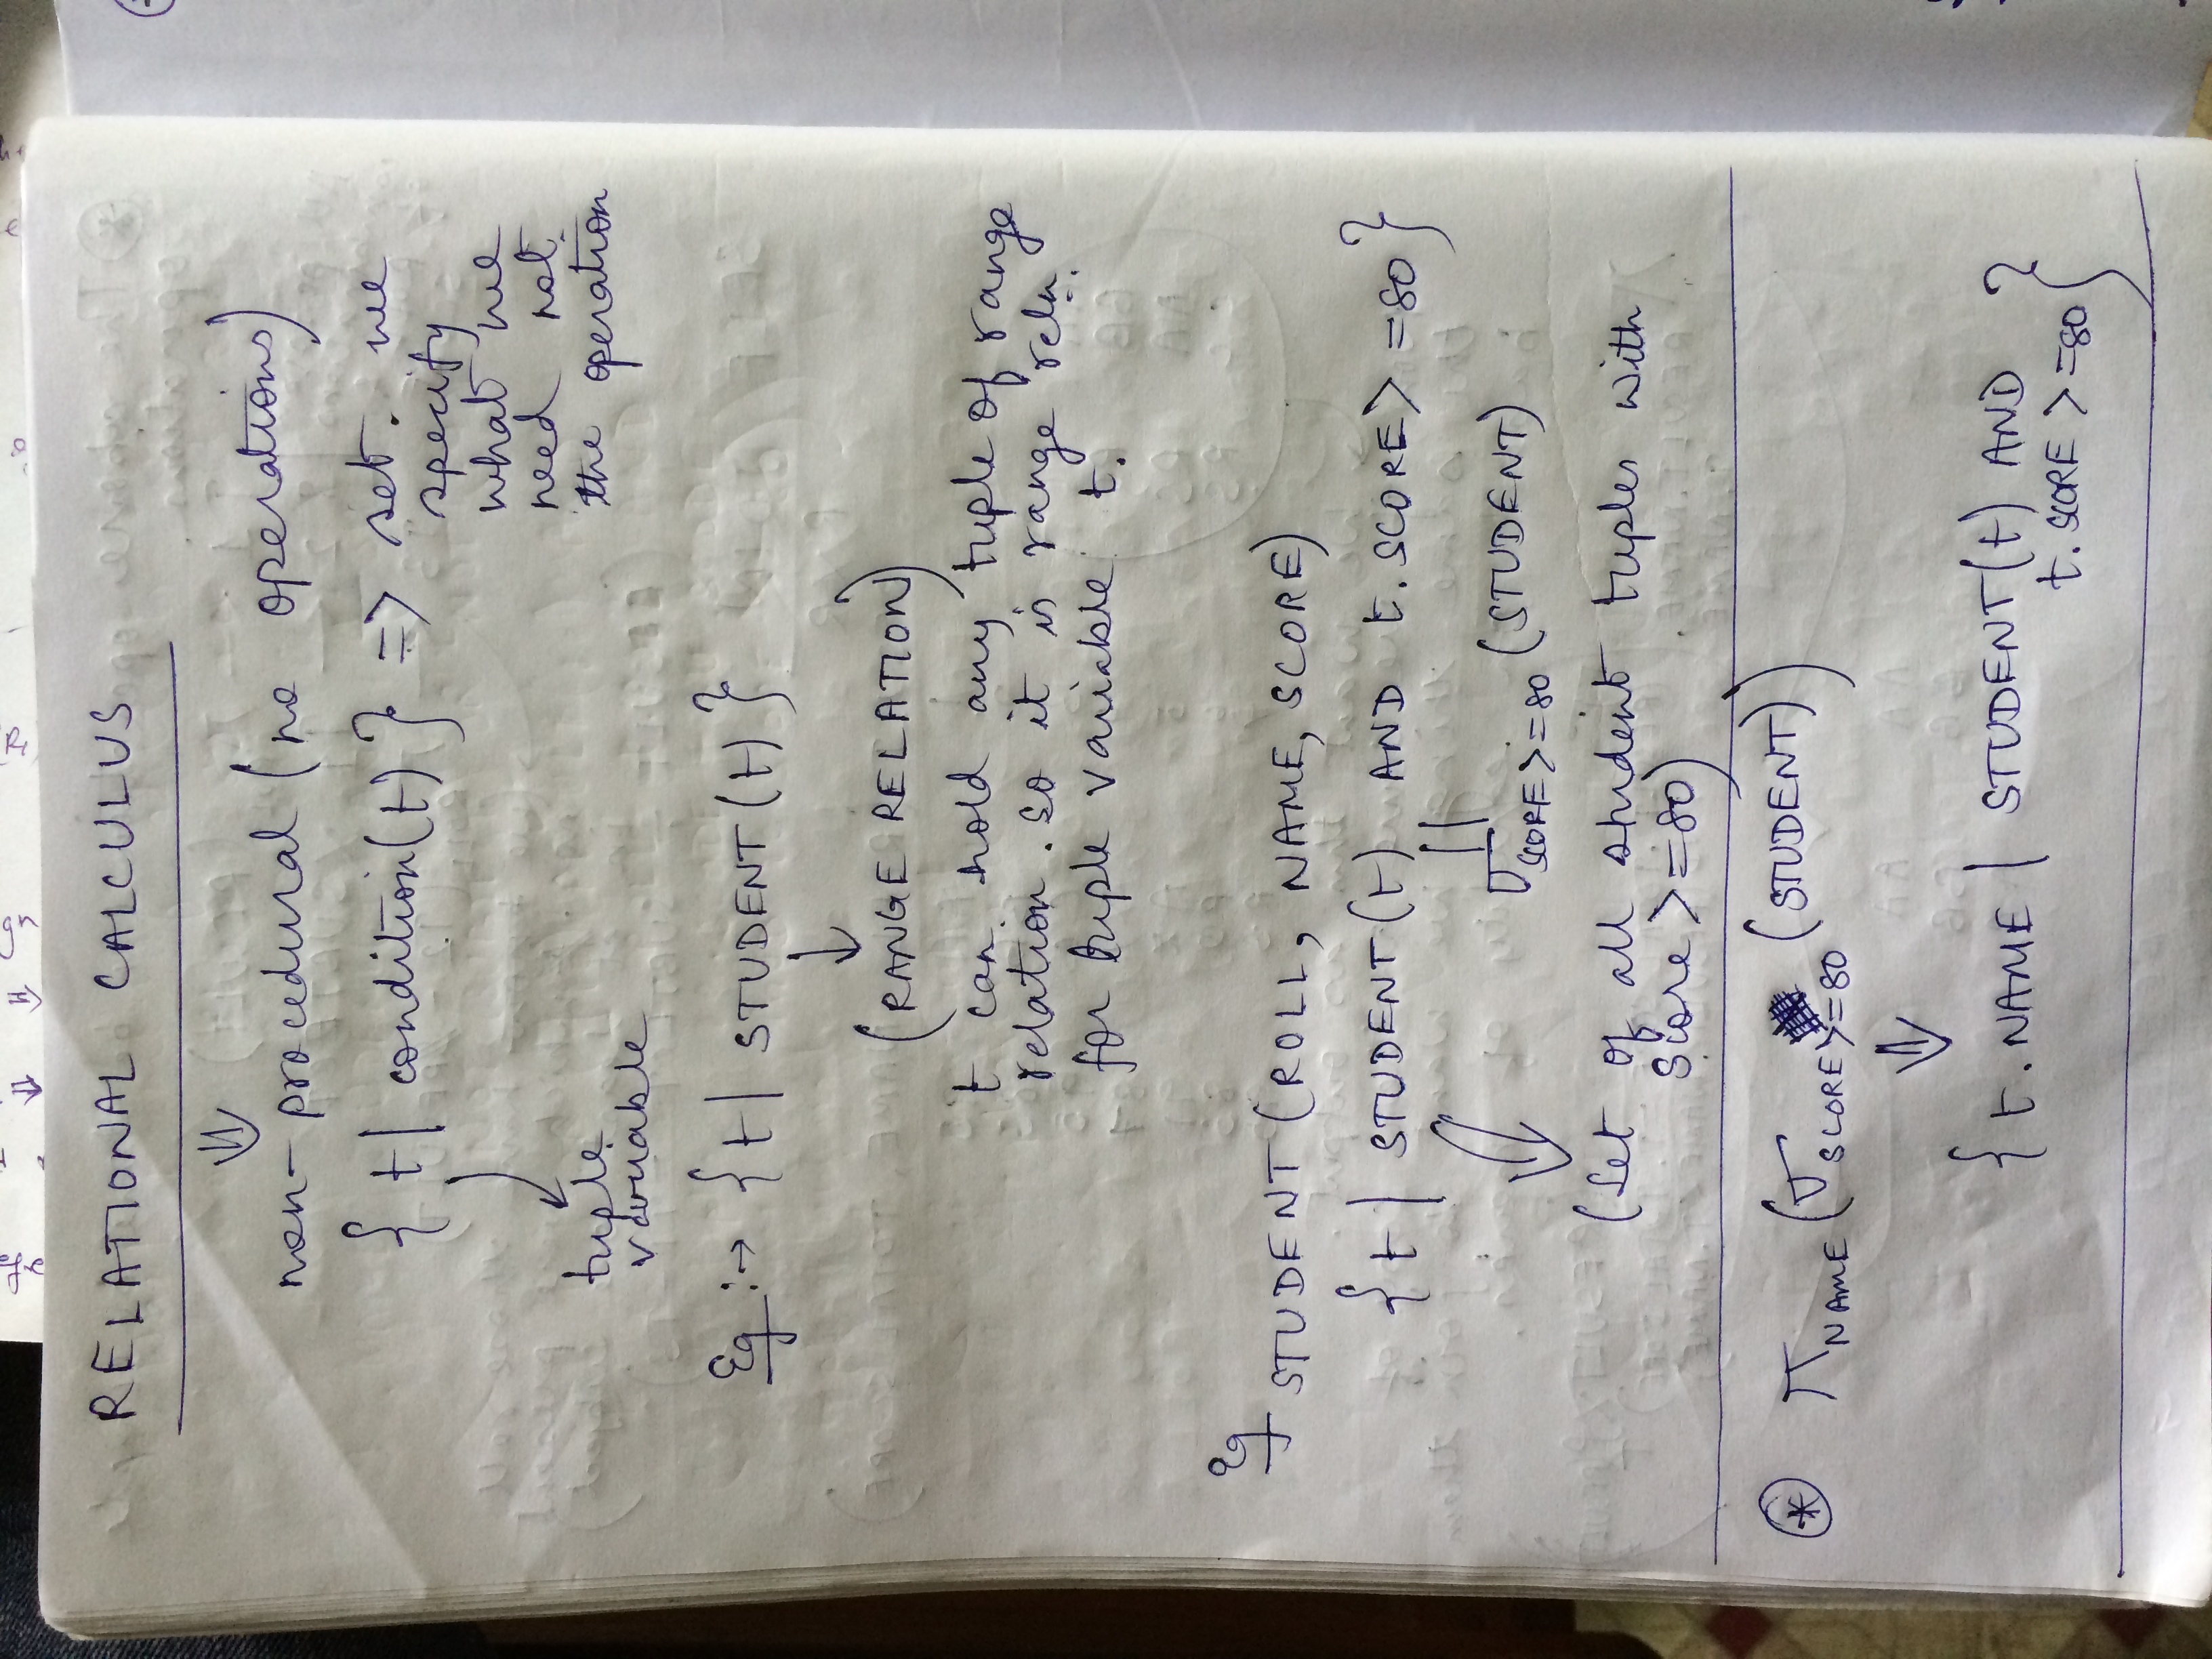 RELATIONAL CALCULUS
⇓
non-procedural (no operations)
{ t | condition(t) } => set. we
specify
what we
need not
the operation
tuple
variable
Eg :→ { t | STUDENT (t) }
↓
(RANGE RELATION)
t can hold any tuple of range
relation. so it is range reln.
for tuple variable t.
Eg
STUDENT (ROLL, NAME, SCORE)
{ t | STUDENT (t) AND t.SCORE > =80 }
σ SCORE >=80 (STUDENT)
(Set of all student tuples with
Score >=80)
* π NAME (σ SCORE >=80 (STUDENT))
⇓
{ t.NAME | STUDENT (t) AND
t.SCORE >=80 }